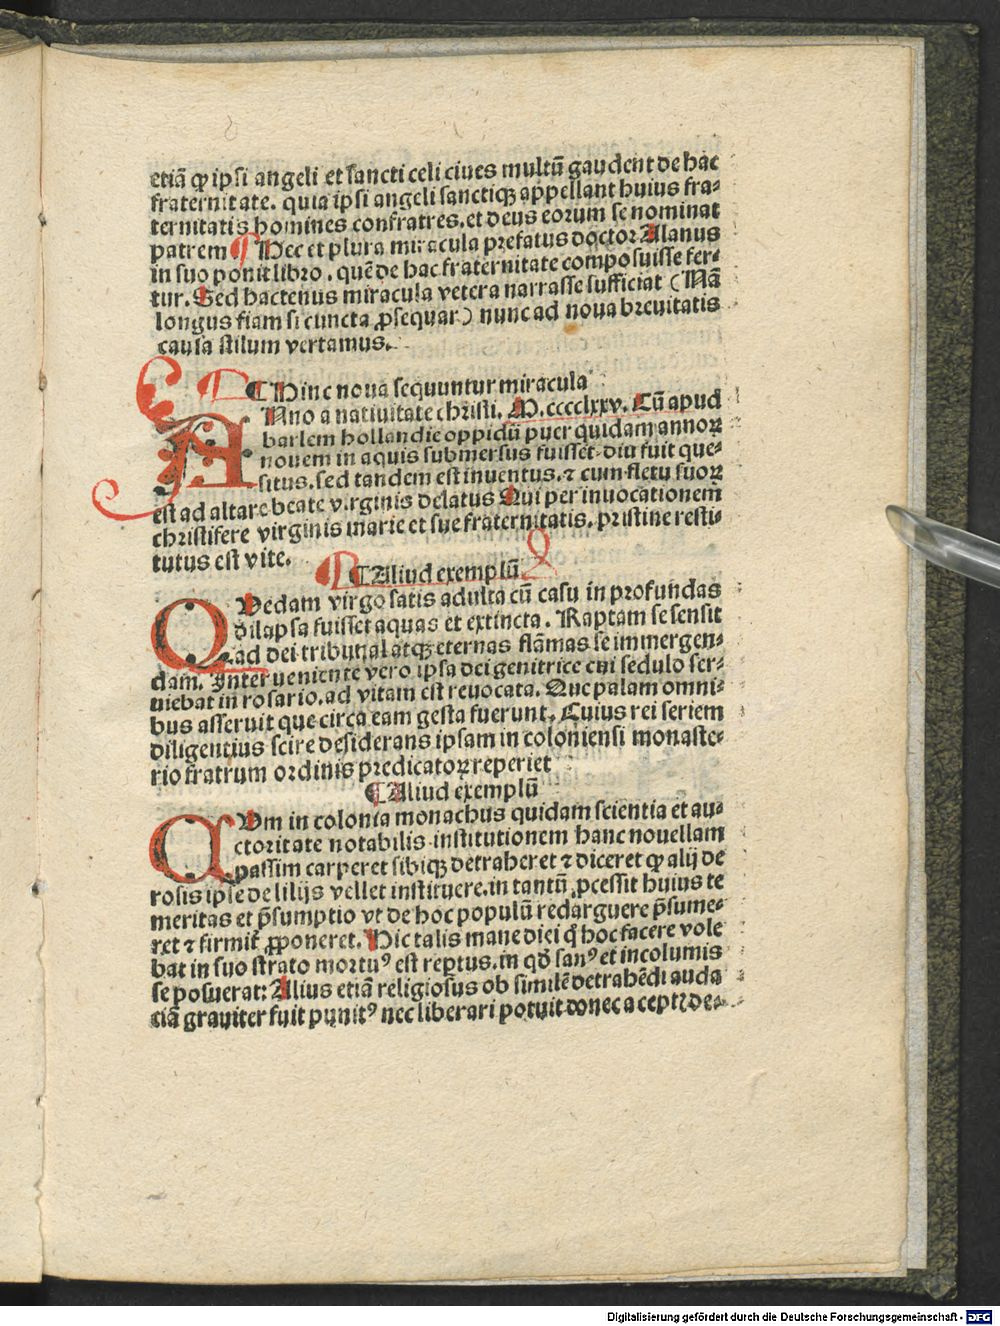 etiā ꝙ ipsi angeli et sancti celi ciues multū gaudent de hac
fraternitate. quia ipsi angeli sanctiqꝫ appellant huius fra⸗
ternitatis homines confratres. et deus eorum se nominat
patrem ¶ Hec et plura miracula prefatus doctor Alanus
in suo ponit libro. quē de hac fraternitate composuisse fer⸗
tur. Sed hactenus miracula vetera narrasse sufficiat (Nā
longus fiam si cuncta ꝓsequar) nunc ad noua breuitatis
causa stilum vertamus.
¶ Hinc noua sequuntur miracula
ANno a natiuitate christi. M.cccclxxv. Cū apud
harlem hollandie oppidū puer quidam annoꝝ
nouem in aquis submersus fuisset. diu fuit que⸗
situs. sed tandem est inuentus. ⁊ cum fletu suoꝝ
est ad altare beate virginis delatus Qui per inuocationem
christifere virginis marie et sue fraternitatis. pristine resti⸗
tutus est vite.
¶ Aliud exemplū
QVedam virgo satis adulta cū casu in profundas
dilapsa fuisset aquas et extincta. Raptam se sensit
ad dei tribunal atqꝫ eternas flāmas se immergen⸗
dam. Inter ueniente vero ipsa dei genitrice cui sedulo ser⸗
uiebat in rosario. ad vitam est reuocata. Que palam omni⸗
bus asseruit que circa eam gesta fuerunt. Cuius rei seriem
diligentius scire desiderans ipsam in coloniensi monaste⸗
rio fratrum ordinis predicatoꝝ reperiet
¶ Aliud exemplū
CVm in colonia monachus quidam scientia et au⸗
ctoritate notabilis institutionem hanc nouellam
passim carperet sibiqꝫ detraheret ⁊ diceret ꝙ alij de
rosis ipse de lilijs vellet instituere. in tantū ꝓcessit huius te
meritas et p̄sumptio vt de hoc populū redarguere p̄sume⸗
ret ⁊ firmit̄ ꝓponeret. Hic talis mane diei q̄ hoc facere vole
bat in suo strato mortuꝰ est reptus. in qd̄ sanꝰ et incolumis
se posuerat: Alius etiā religiosus ob similē detrahēdi auda
ciā grauiter fuit punitꝰ nec liberari potuit donec a ceptꝭ de⸗
Digitalisierung gefördert durch die Deutsche Forschungsgemeinschaft - DFG